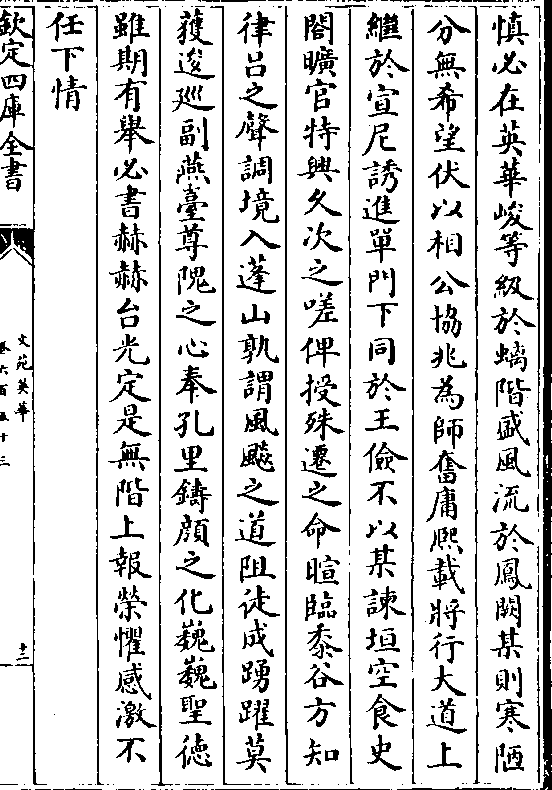 慎必在英華峻等級於螭階盛風流於鳳闕某則寒陋
分無希望伏以相公協兆為師奮庸熙載將行大道上
繼於宣尼誘進單門下同於王儉不以某諫垣空食史
閣曠官特興久次之嗟俾授殊遷之命暄臨黍谷方知
律吕之聲調境入蓬山孰謂風飈之道阻徒成踴躍莫
䕶逡廵副燕臺尊隗之心奉孔里鑄顔之化巍巍聖徳
雖期有舉必書赫赫台光定是無階上報榮懼感激不
任下情
欽定四庫全書
文苑英華
卷六百五十三
十二